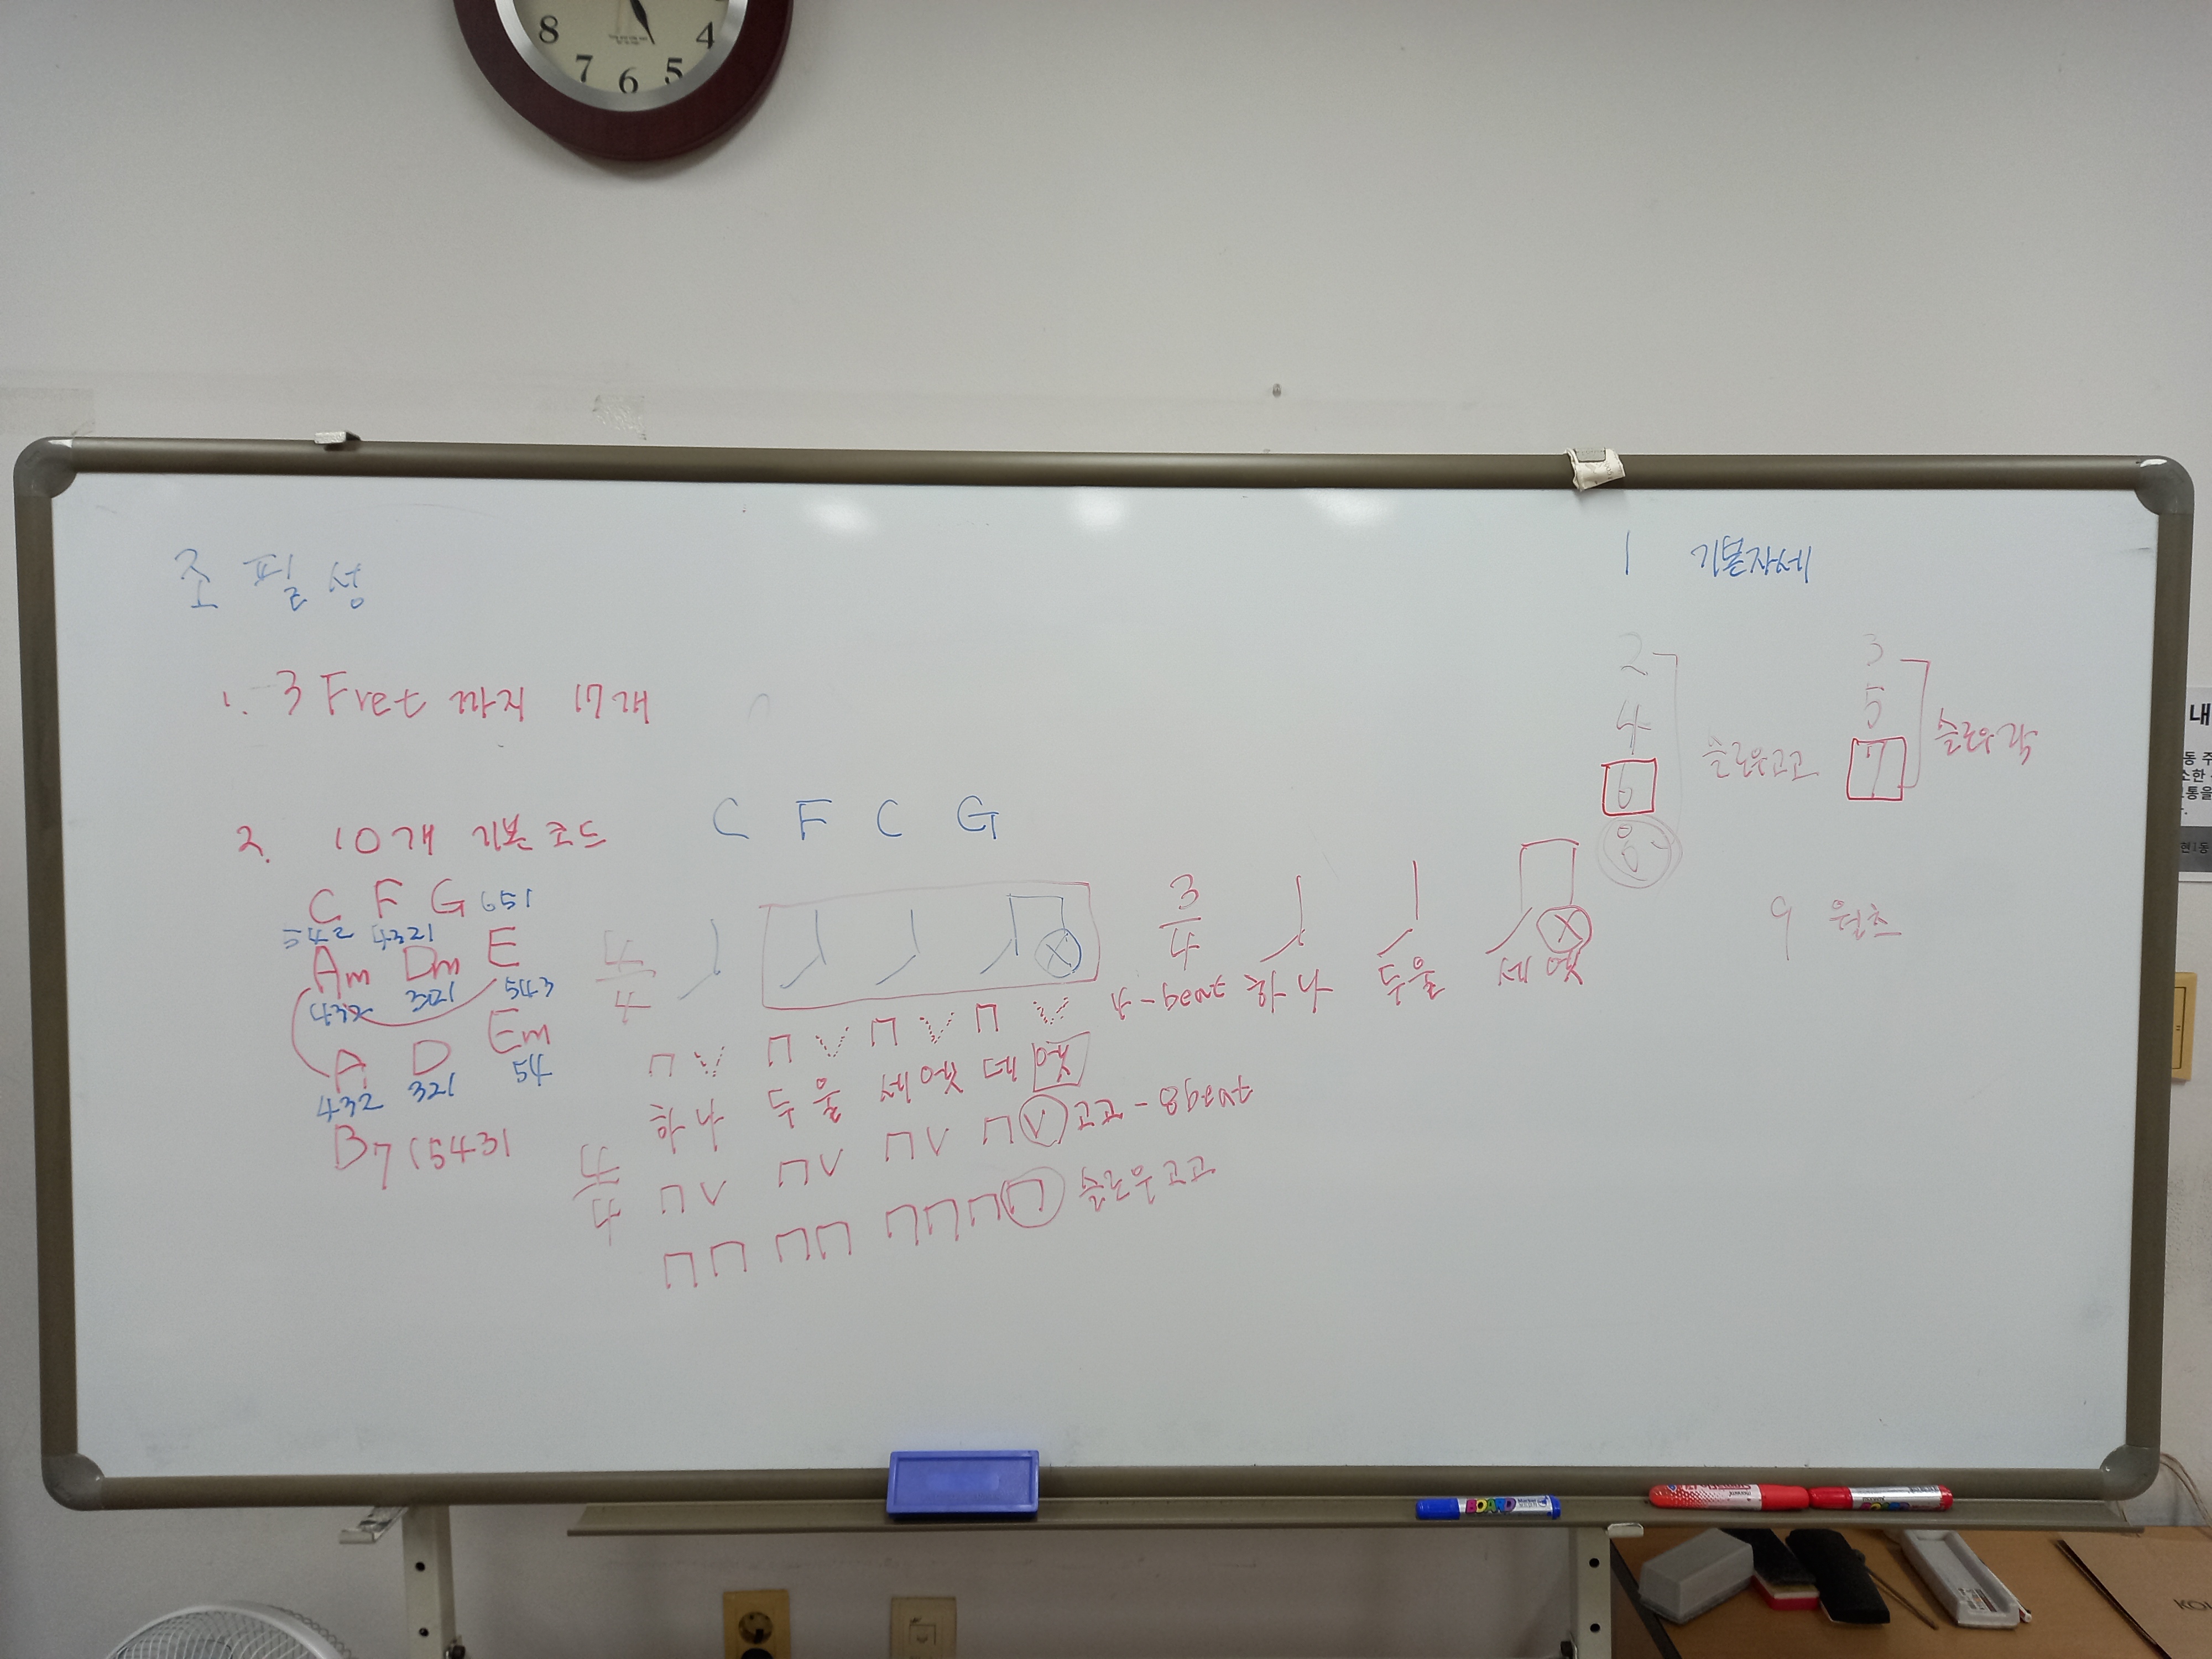 8 7 6 5 4
조필성
1 기본자세
1. 3 Fret 까지 17개
2 3
4 5
6 슬로우고고 7 슬로우락
8
9 왈츠
C F C G
2. 10개 기본코드
C F G 651
542 4321
Am Dm E
432 321 543
A D Em
432 321 54
B7 (5431
4/4
3/4
4-beat 하나 두울 세엣
하나 두울 세엣 네엣
4/4 고고-8beat
슬로우고고
내
동 주
소한
통을
현1동
BOARD Marker